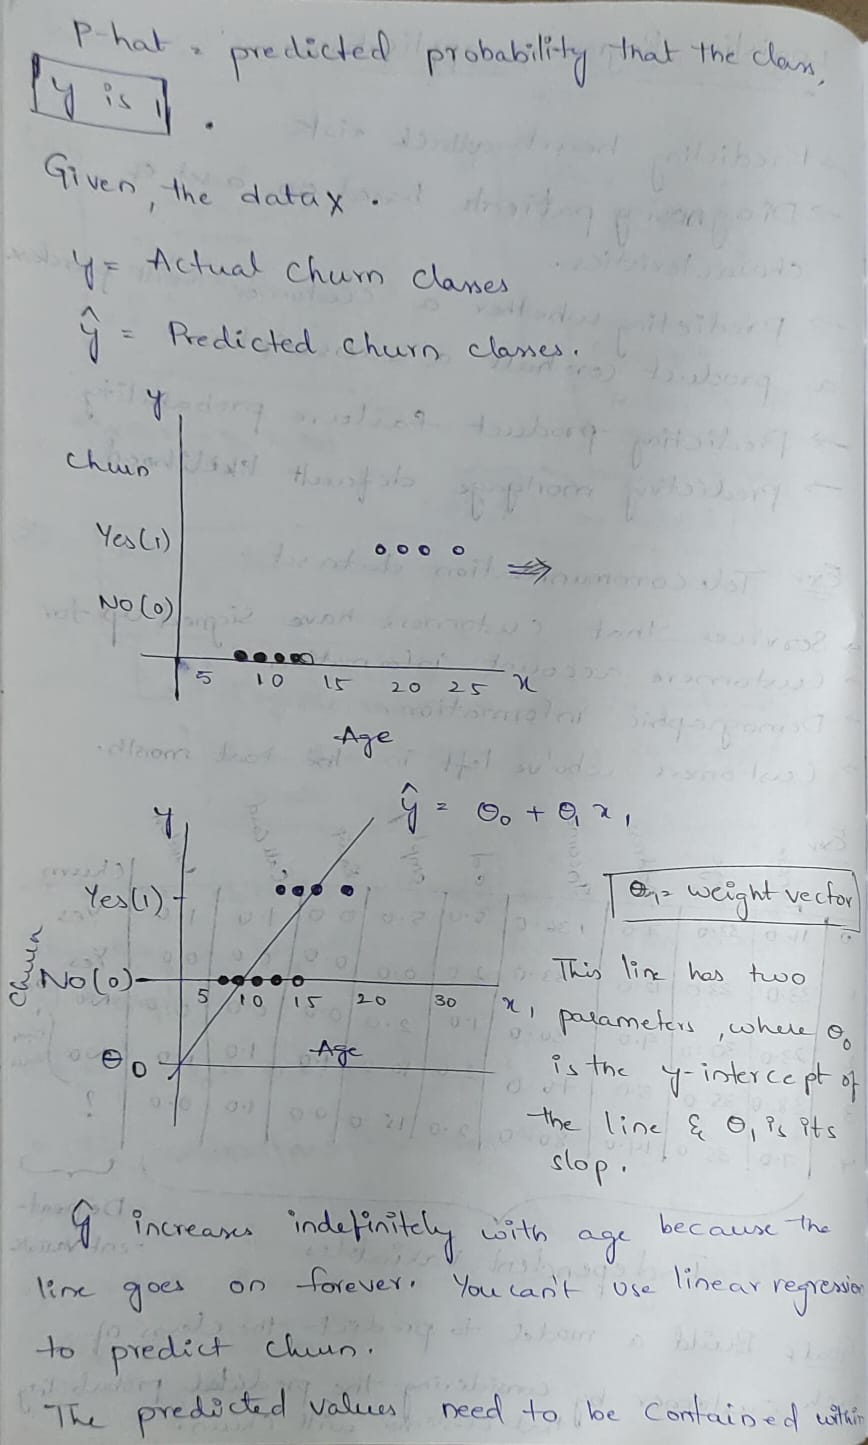 P-hat = predicted probability that the class,
y is 1.
Given, the data x.
y = Actual churn classes
ŷ = Predicted churn classes.
y
Churn
Yes(1)
⇒
NO(0)
5 10 15 20 25 x
Age
ŷ = θ₀ + θ₁ x₁
y
Yes(1)
θ₁ = weight vector
Churn
NO(0)
5 10 15 20 30 x₁
Age
θ₀
This line has two
parameters, where θ₀
is the y-intercept of
the line & θ₁ is its
slop.
ŷ increases indefinitely with age because the
line goes on forever. You can't use linear regression
to predict churn.
The predicted values need to be contained within